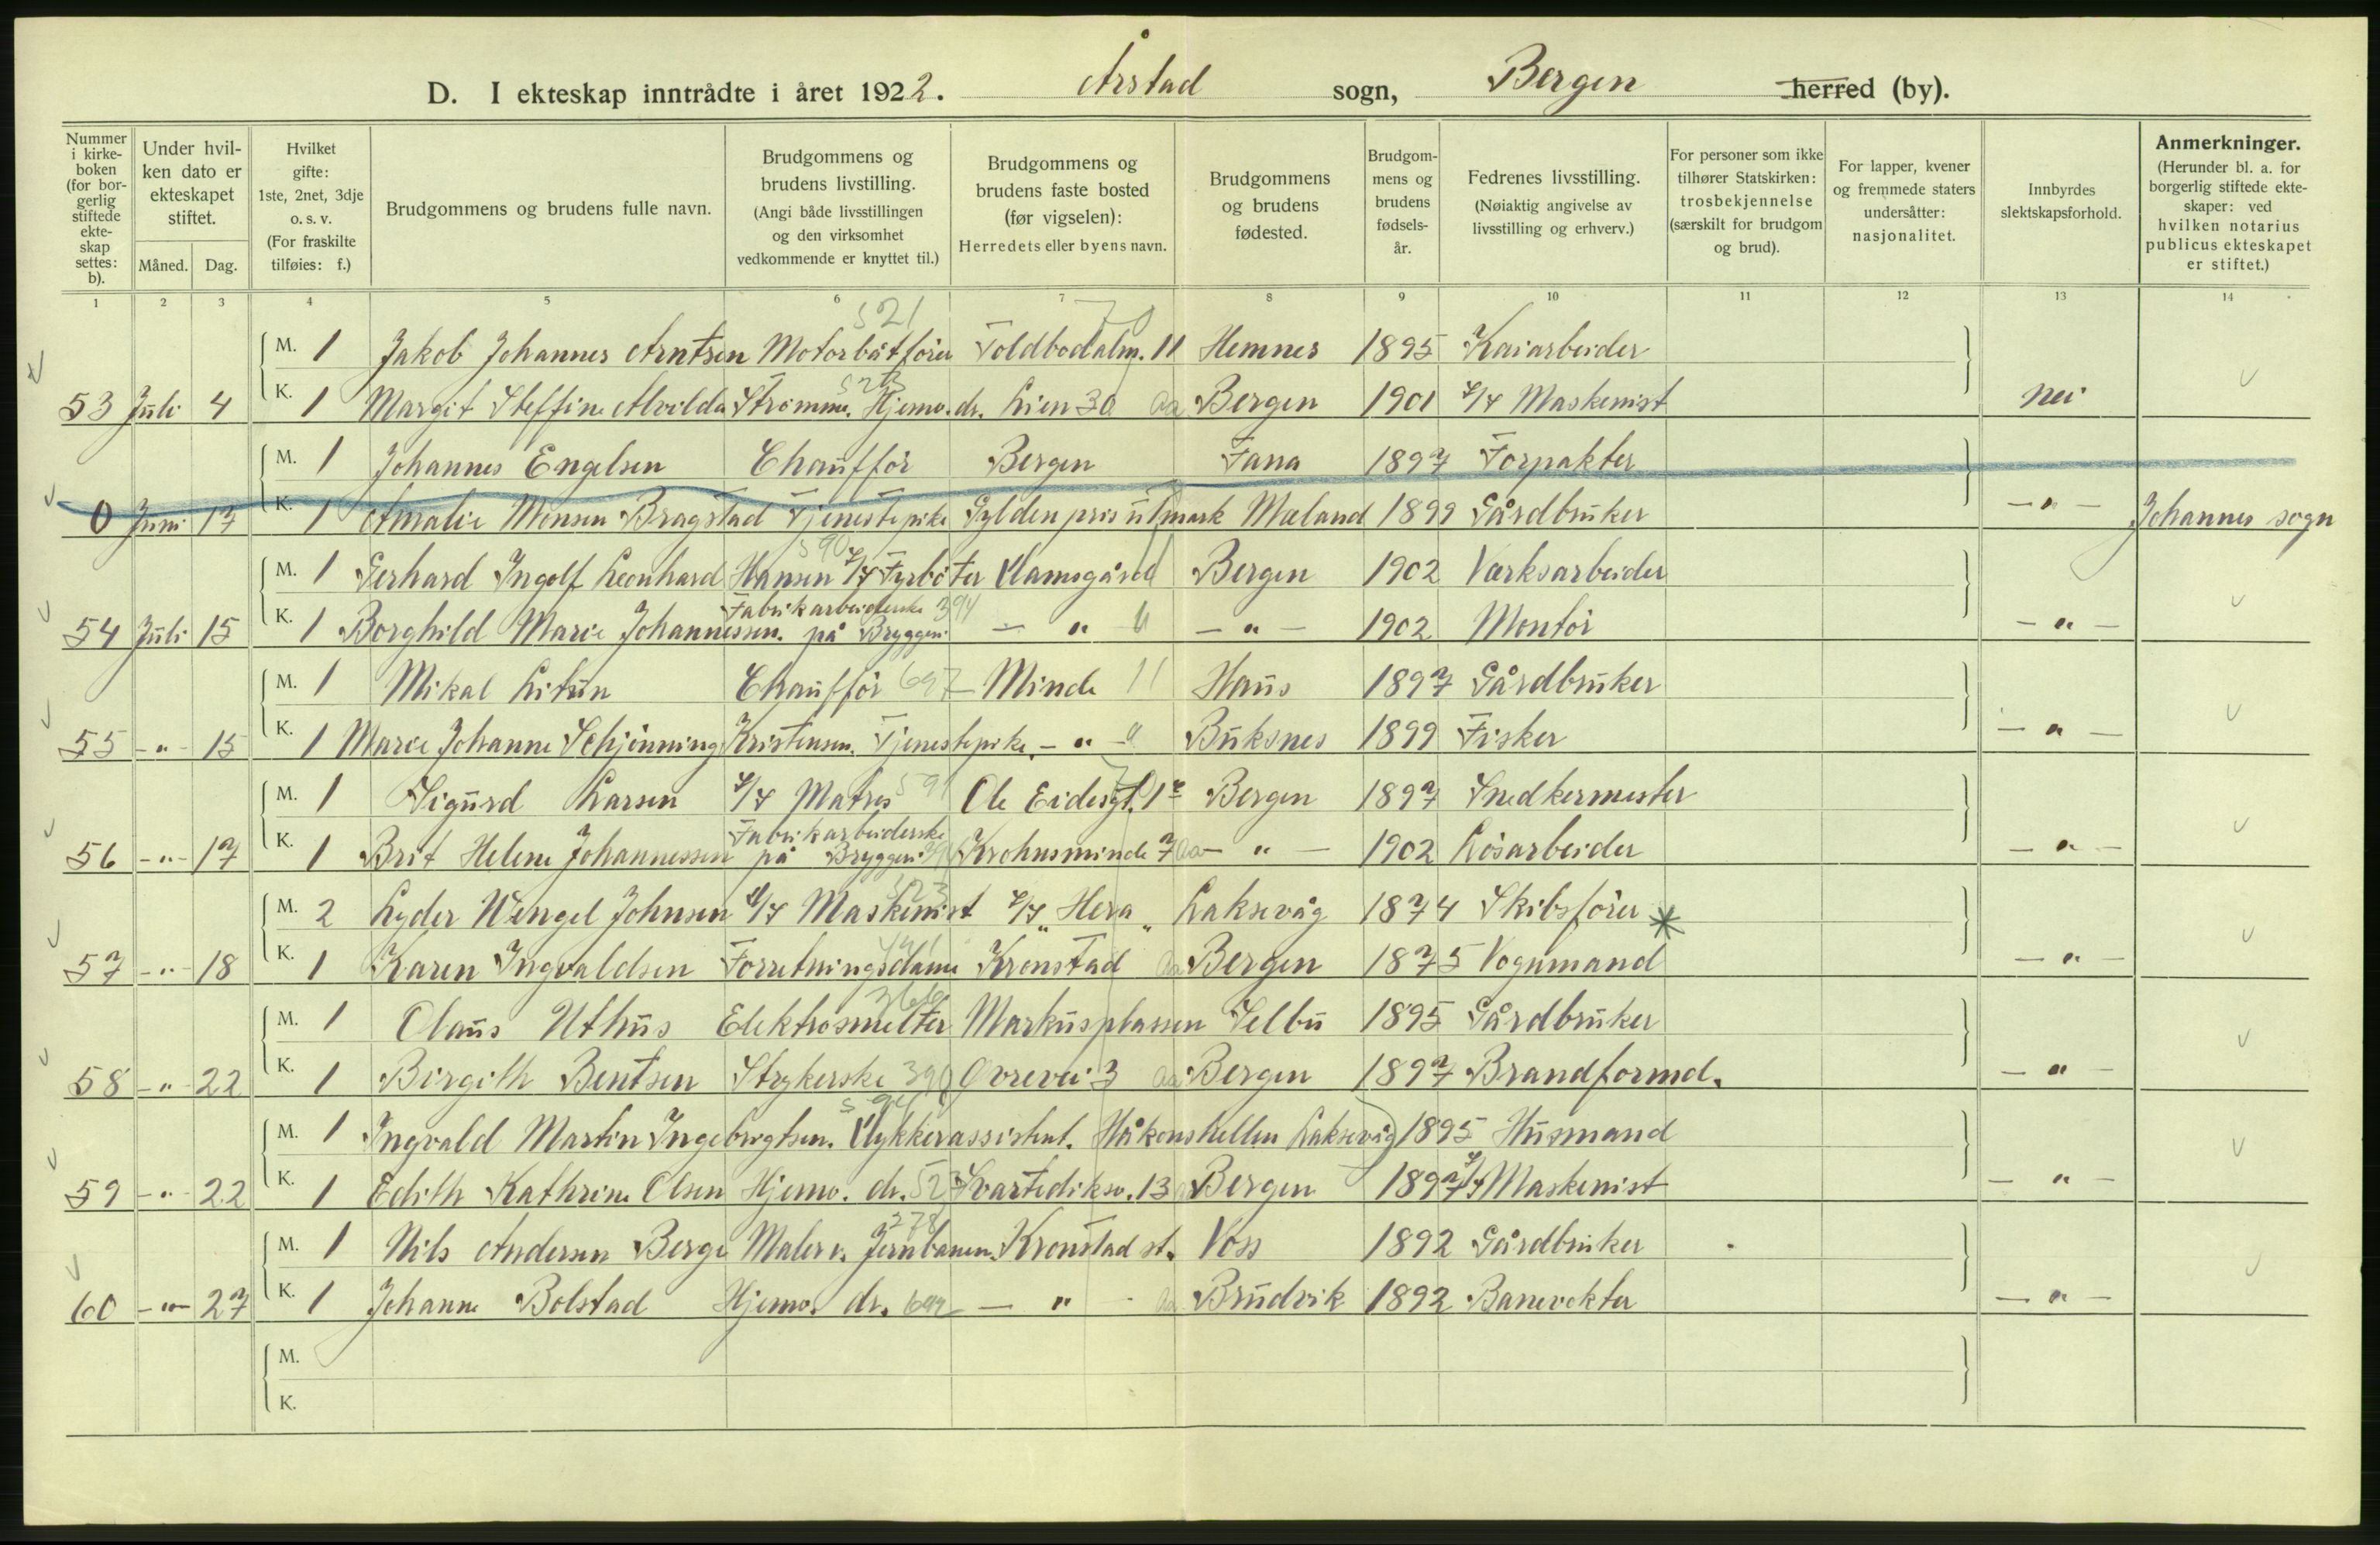 D. I ekteskap inntrådte i året 1922. Årstad sogn, Bergen herred (by).
Nummer i kirkeboken (for borgerlig stiftede ekteskap settes: b).
Under hvilken dato er ekteskapet stiftet.
Måned. Dag.
Hvilket gifte: 1ste, 2net, 3dje o. s. v. (For fraskilte tilføies: f.)
Brudgommens og brudens fulle navn.
Brudgommens og brudens livstilling. (Angi både livsstillingen og den virksomhet vedkommende er knyttet til.)
Brudgommens og brudens faste bosted (før vigselen): Herredets eller byens navn.
Brudgommens og brudens fødested.
Brudgommens og brudens fødselsår.
Fedrenes livsstilling. (Nøiaktig angivelse av livsstilling og erhverv.)
For personer som ikke tilhører Statskirken: trosbekjennelse (særskilt for brudgom og brud).
For lapper, kvener og fremmede staters undersåtter: nasjonalitet.
Innbyrdes slektskapsforhold.
Anmerkninger. (Herunder bl. a. for borgerlig stiftede ekteskaper: ved hvilken notarius publicus ekteskapet er stiftet.)
1 2 3 4 5 6 7 8 9 10 11 12 13 14
521 70
M. 1 Jakob Johannes Arntsen Motorbåtfører Toldbodalm. 11 Hemnes 1895 Kaiarbeider
53 Juli 4 K. 1 Margit Steffine Alvilda Strømme. Hjemv. dr. Lien 30 Bergen 1901 Maskinist nei
M. 1 Johannes Engelsen Chauffør Bergen Fana 1897 Forpakter
0 Juni 17 K. 1 Amalie Monsen Bragstad Tjenestepike Gyldenpris utmark Mæland 1899 Gårdbruker — " — Johannes sogn
M. 1 Gerhard Ingolf Leonhard Hansen Fyrbøter Vamsgård Bergen 1902 Verksarbeider
54 Juli 15 K. 1 Borghild Marie Johannessen. Fabrikarbeiderske på Bryggeri 394 — " — — " — 1902 Montør — " —
M. 1 Mikal Litun Chauffør 697 Minde 11 Haus 1897 Gårdbruker
55 — " — 15 K. 1 Marie Johanne Schjønning Kristensen. Tjenestepike. — " — Buksnes 1899 Fisker — " —
M. 1 Sigurd Larsen Matros 591 Ole Eidesgt. Bergen 1897 Snedkermester
56 — " — 17 K. 1 Brit Helene Johannessen Fabrikarbeiderske på Bryggeri Krohnsminde 7 — " — 1902 Løsarbeider — " —
M. 2 Lyder Wengel Johnsen Maskinist "Hera" Laksevåg 1874 Skibsfører *
57 — " — 18 K. 1 Karen Ingvaldsen Forretningsdame Kronstad Bergen 1875 Vognmand — " —
M. 1 Olaus Uthus Elektrosmelter Markusplassen Selbu 1895 Gårdbruker
58 — " — 22 K. 1 Birgith Bentsen Strykerske 390 Øvrevei 3 Bergen 1897 Brandformd. — " —
M. 1 Ingvald Martin Ingebrigtsen. Dykkerassistent. Håkonshellen Laksevåg 1895 Husmand
59 — " — 22 K. 1 Edith Kathrine Olsen Hjemv. dr. Svartediksv. 13 Bergen 1897 Maskinist — " —
278
M. 1 Nils Andersen Berge Maler v. Jernbanen. Kronstad st. Voss 1892 Gårdbruker
60 — " — 27 K. 1 Johanne Bolstad Hjemv. dr. — " — Brudvik 1892 Banevokter — " —
M.
K.